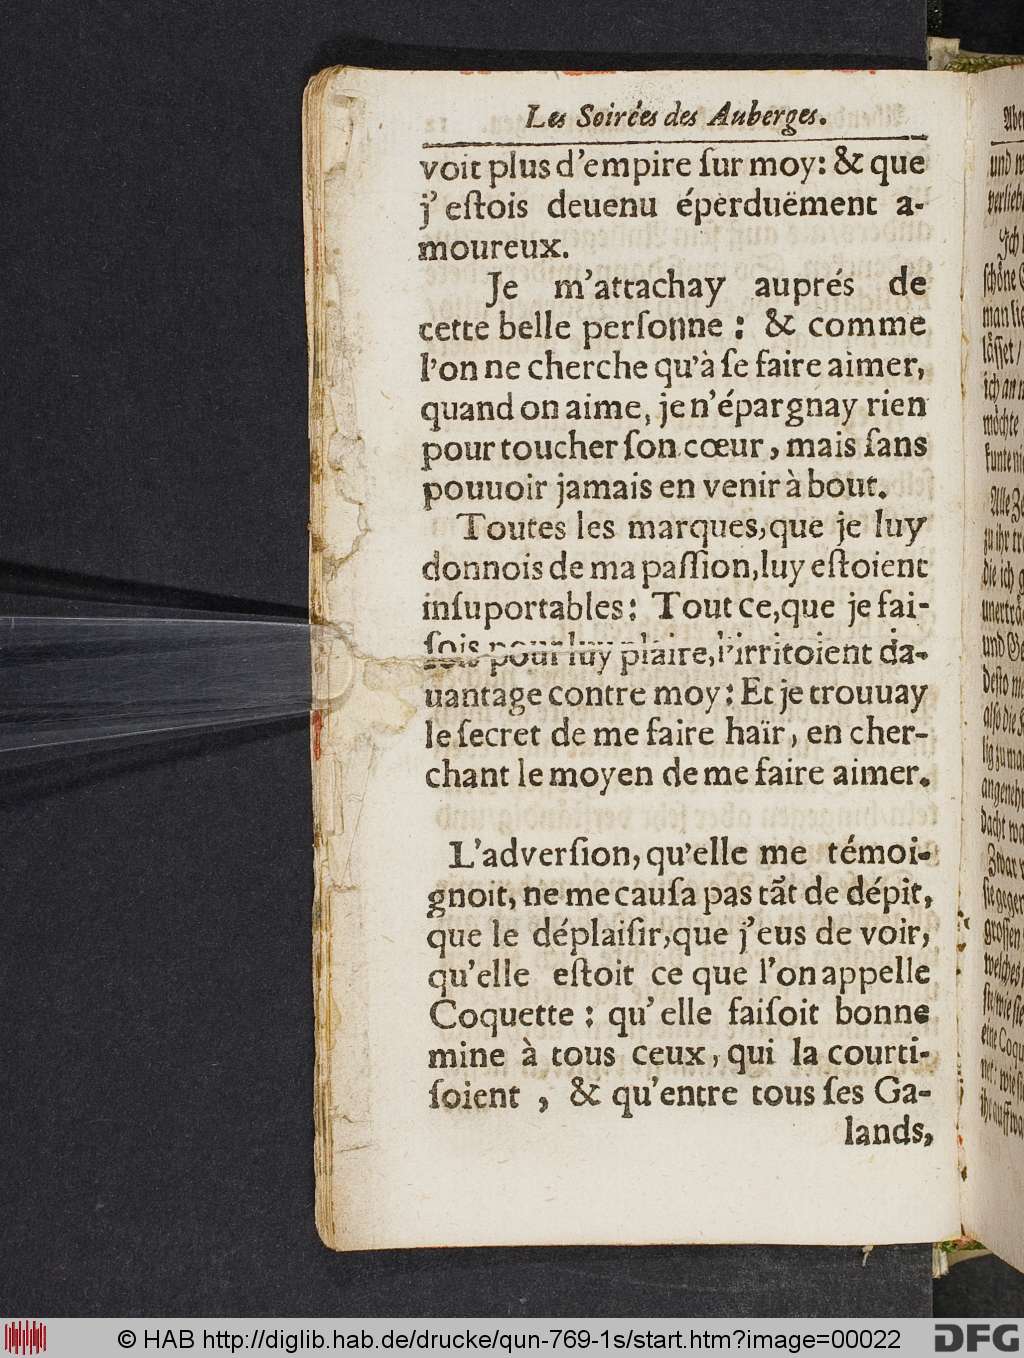 Les Soirées des Auberges.
voit plus d'empire ſur moy: & que
j' eſtois deuenu éperduëment a-
moureux.
Je m'attachay auprés de
cette belle perſonne : & comme
l'on ne cherche qu'à ſe faire aimer,
quand on aime, je n'épargnay rien
pour toucher ſon cœur, mais ſans
pouuoir jamais en venir à bout.
Toutes les marques, que je luy
donnois de ma paſſion, luy eſtoient
inſuportables: Tout ce, que je fai-
ſois pour luy plaire, l'irritoient da-
uantage contre moy: Et je trouuay
le ſecret de me faire haïr, en cher-
chant le moyen de me faire aimer.
L'adverſion, qu'elle me témoi-
gnoit, ne me cauſa pas tãt de dépit,
que le déplaiſir, que j'eus de voir,
qu'elle eſtoit ce que l'on appelle
Coquette : qu' elle faiſoit bonne
mine à tous ceux, qui la courti-
ſoient , & qu'entre tous ſes Ga-
lands,
und
Ich
ſchöne
man
läſſet /
ich an
möchte
Alle
zu ihr
die ich
und
deſto
angeneh
dacht
Zwar
groſſen
welches
© HAB http://diglib.hab.de/drucke/qun-769-1s/start.htm?image=00022
DFG